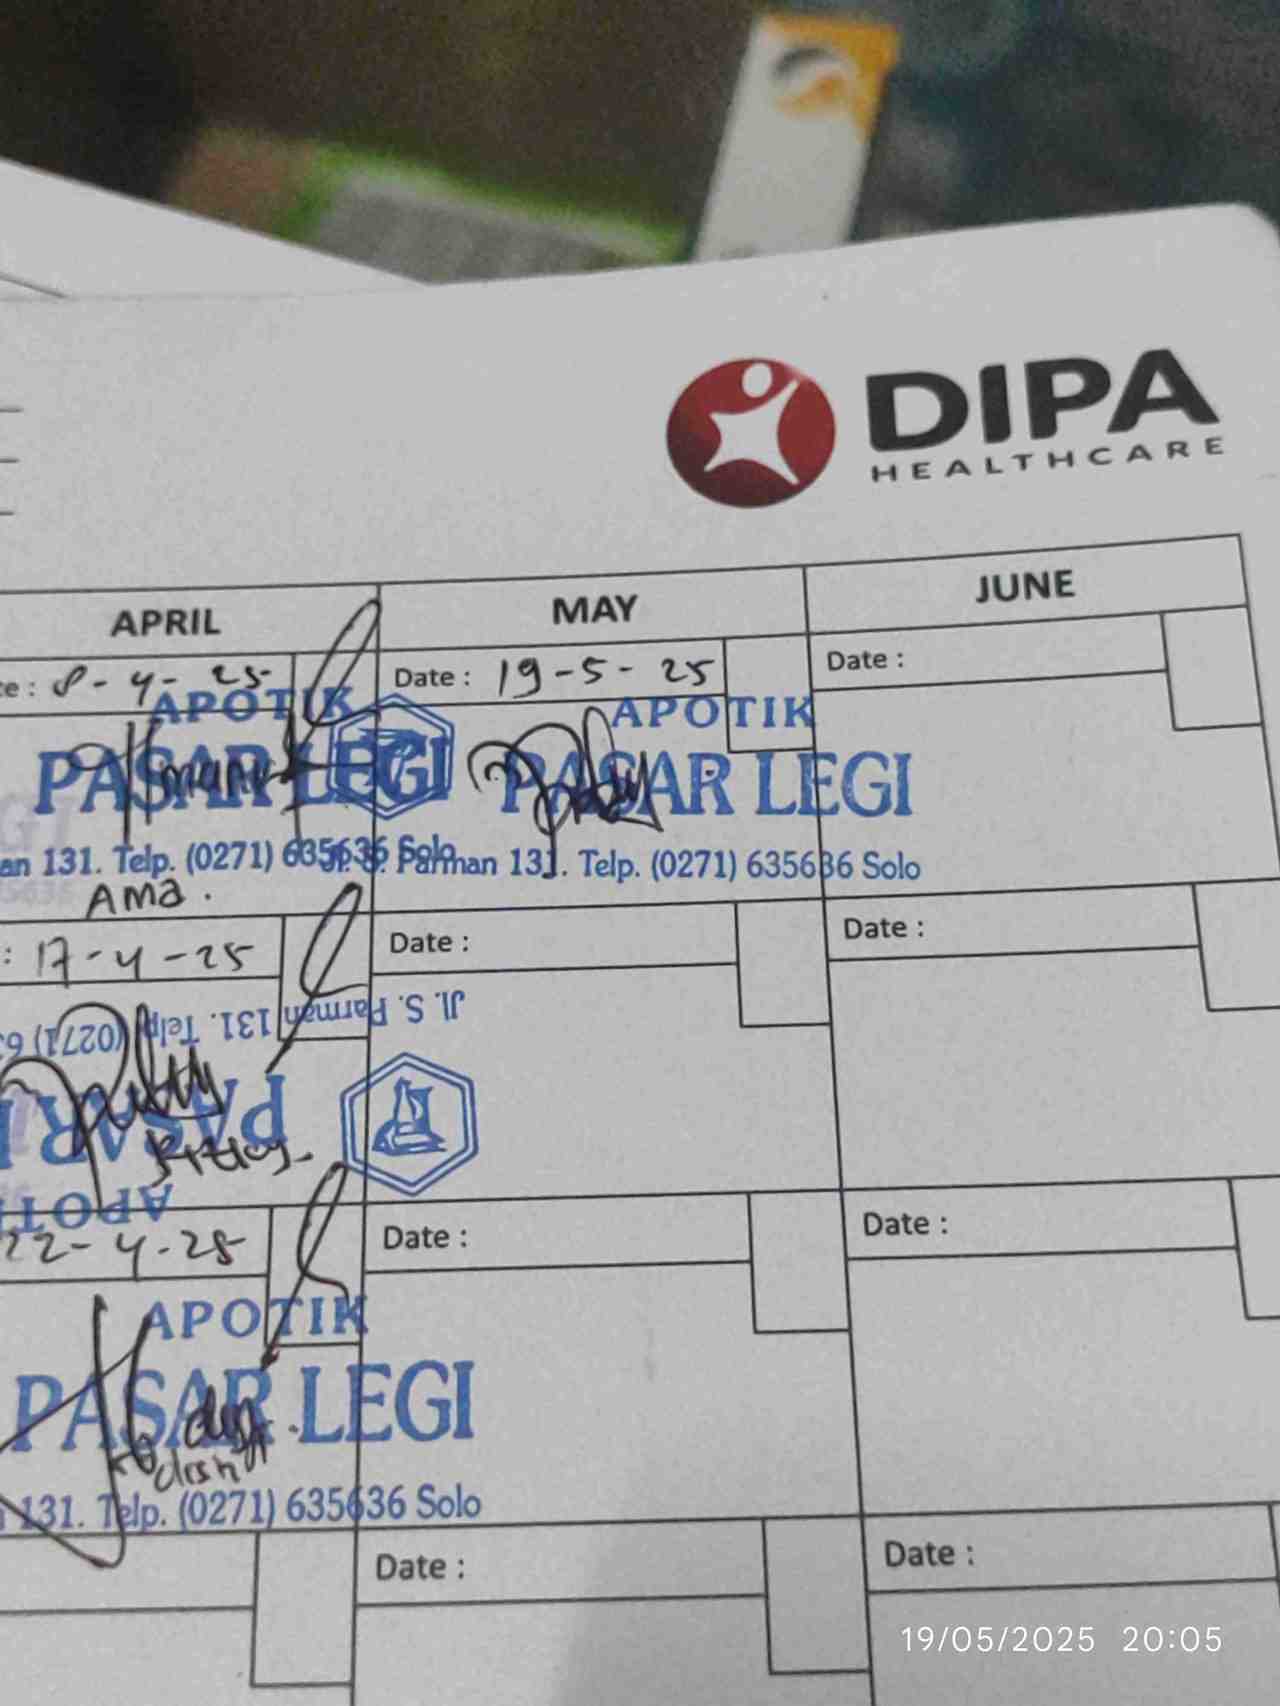 DIPA
HEALTHCARE
APRIL
MAY
JUNE
te : 8-4-25
Date : 19-5-25
Date :
APOTIK
PASAR LEGI
an 131. Telp. (0271) 635636 Solo
Ama.
APOTIK
PASAR LEGI
Parman 131. Telp. (0271) 635636 Solo
: 17-4-25
Date :
Date :
Jl. S. Parman 131. Telp. (0271) 6
PASAR
APOTI
22-4-25
Date :
Date :
APOTIK
PASAR LEGI
131. Telp. (0271) 635636 Solo
Date :
Date :
19/05/2025 20:05